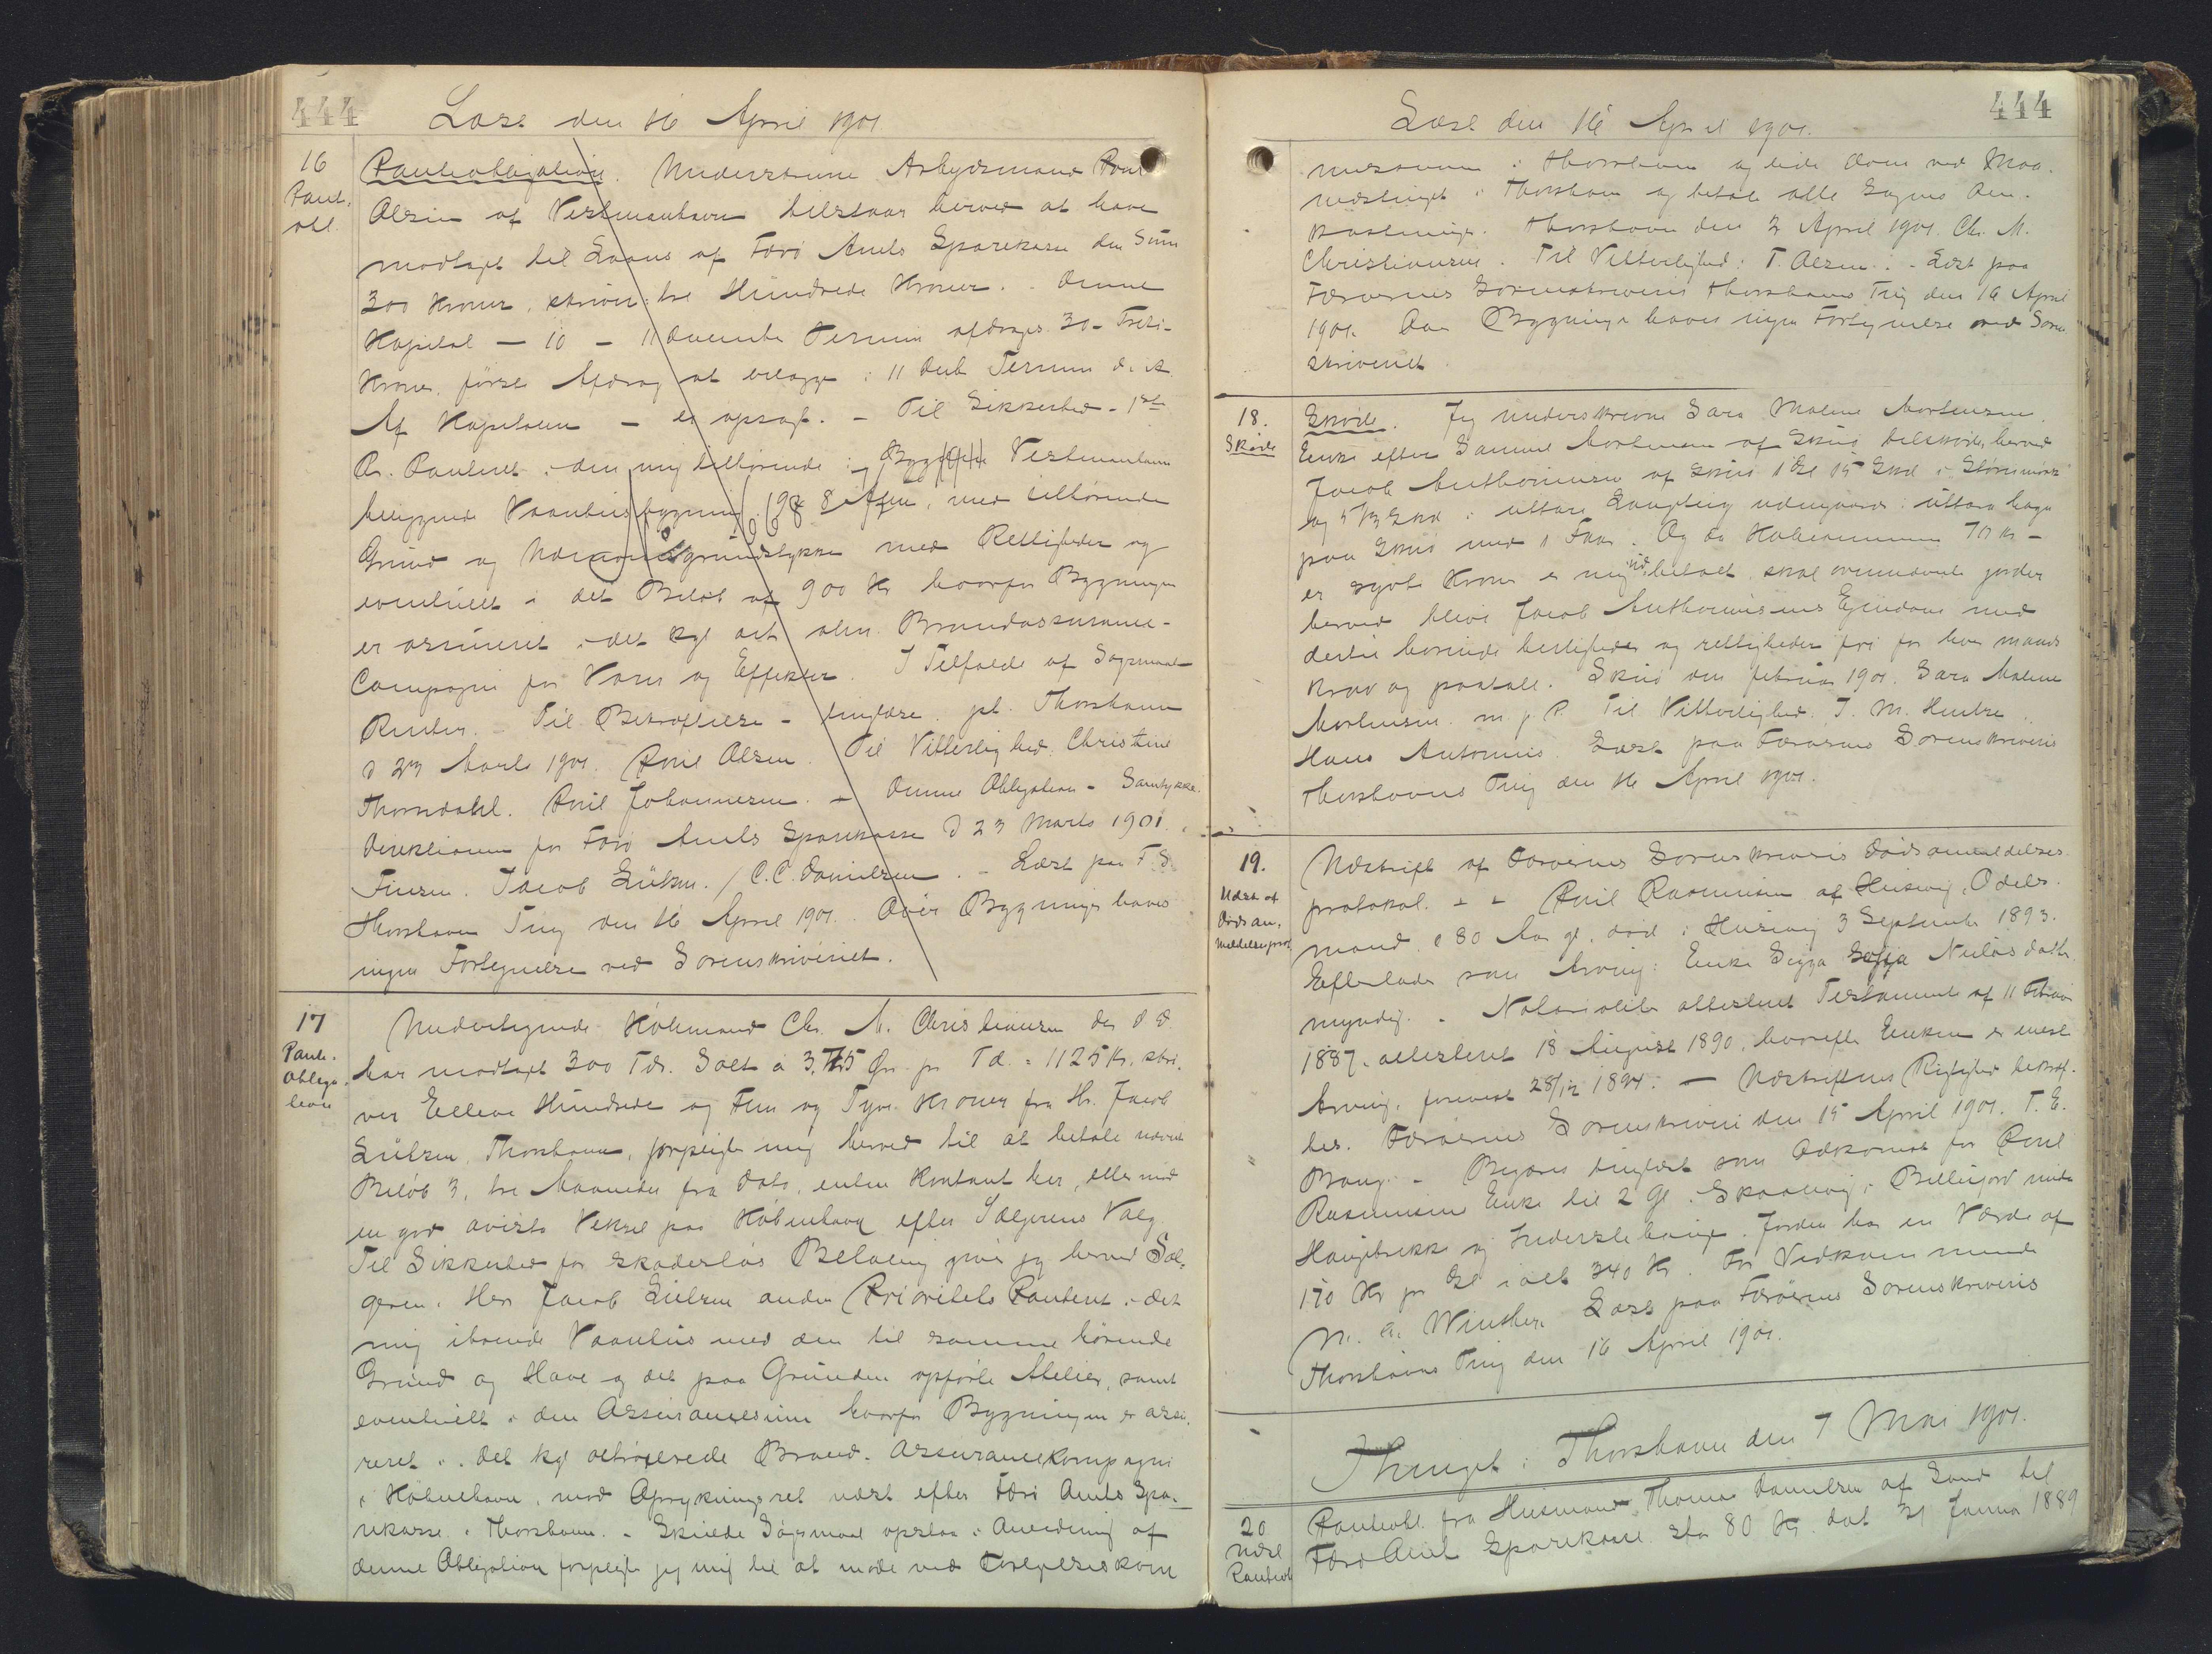 444
Læst den 16 April 1901
16
Pant.
obl.
Panteobligation. Undertegnede Arbejdsmand Poul
Olsen af Vestmanhavn tilstaar herved at have
modtaget til Laans af Færø Amts Sparekasse den Sum
300 Kroner, skriver tre Hundrede Kroner. Denne
Kapital — 10 — 11 December Termin afdrages 30 - Treti-
Kroner, første Afdrag at erlægge i 11 Decb Termin d. A.
Af Kapitalen — er opsagt. — Til Sikkerhed - 1ste
Pr. Panteret i den mig tilhørende i Vestmanhavn
beliggende Vaanhusbygning med tilhørende
Grund og grundstykke med Rettigheder og
eventuelt i det Beløb af 900 Kr hvorfor Bygningen
er assureret i det kgl oct. alm. Brandassurance-
Compagni for Varer og Effekter. I Tilfælde af Søgsmaal
Renter. Til Bekræftelse - tinglæse. pt. Thorshavn
d 23 Marts 1901. Poul Olsen. Til Vitterlighed. Christine
Thomsdahl. Poul Johannesen. — Denne Obligation - Samtykke.
Direktionen for Færø Amts Sparekasse d 23 Marts 1901.
Finsen. Jacob Lützen. / C.C. Danielsen. - Læst paa F. S.
Thorshavn Ting den 16 April 1901. Over Bygninger haves
ingen Fortegnelse ved Sorenskriveriet.
17
Pante-
obliga-
tion
Undertegnede Købmand Chr. M. Christiansen der D D
har modtaget 300 Tdr. Salt à 3,75 Øre pr Td. = 1125 Kr. skri-
ver Elleve Hundrede og Fem og Tyve Kroner fra Hr. Jacob
Lützen, Thorshavn, forpligter mig herved til at betale nævnte
Beløb 3, tre Maaneder fra Dato, enten Kontant her, eller med
en god avista Veksel paa København efter Sælgerens Valg
Til Sikkerhed for skadesløs Betaling giver jeg herved Sæl-
geren, Herr Jacob Lützen anden Prioritets Panteret i det
mig iboende Vaanhus med den til samme hørende
Grund og Have og det paa Grunden opførte Atelier, samt
eventuelt i den Assurancesum hvorfor Bygningen er assu-
reret i det kgl octrojerede Brand-Assurancekompagni
i København, med Oprykningsret næst efter Færø Amts Spa-
rekasse i Thorshavn. - Skulde Søgsmaal opstaa i Anledning af
denne Obligation forpligter jeg mig til at møde ved Forligelseskom
444
Læst den 16 April 1901.
missionen i Thorshavn og lide Dom ved Maa-
nedstinget i Thorshavn og betale alle Sagens Om-
kostninger. Thorshavn den 3 April 1901. Chr. M.
Christiansen. Til Vitterlighed: T. Olsen. - Læst paa
Færøernes Sorenskriveris Thorshavns Ting den 16 April
1901. Over Bygninger haves ingen Fortegnelse ved Soren-
skriveriet.
18.
Skøde
Skøde. Jeg underskrevne Sara Malene Mortensen
Enke efter Samuel Mortensen af Skuø tilskøder herved
Jacob Anthoniusen af Skuø 1 Gl 15 Skd i Störumörk
og 5 1/3 Skd i uttara Langteig udengaards i uttara haga
paa Skuø med 1 Faar. Og da Købesummen 70 Kr -
er syvti Kroner er mig udbetalt skal ovennævnte jorder
herved blive Jacob Anthoniusens Ejendom med
dertil hørende herligheder og rettigheder fri for hver mands
krav og paatale. Skuø den februar 1901. Sara Malene
Mortensen m. f. P. Til Vitterlighed. J. M. Hentze
Hans Antonius. Læst paa Færøernes Sorenskriveris
Thorshavns Ting den 16 April 1901.
19.
Udskr. af
Dødsan-
meldelsesprot
Udskrift af Færøernes Sorenskriveris Dødsanmeldelses
protokol. - - Poul Rasmussen af Husevig, Odels-
mand, c 80 Aar gl. død i Husevig 3 September 1893.
Efterlader som Arving: Enke Sigga Sofja Niclasdatter
myndig. - Notarialiter attesteret Testamente af 11 Februar
1887, attesteret 18 August 1890, hvorefter Enken er eneste
Arving, forevist 28/12 1894. — Udskriftens Rigtighed bekræf-
tes. Færøernes Sorenskriveri den 15 April 1901. T. E.
Bang. - Begæres tinglæst som Adkomst for Poul
Rasmussens Enke til 2 Gl. Skaalevig, i Bettisjord under
Heugebrekke og Inderstehauge. Jorden har en Værdi af
170 Kr pr Gl ialt 340 Kr. For Vedkommende
M. A. Winther. Læst paa Færøernes Sorenskriveris
Thorshavns Ting den 16 April 1901.
Thinget i Thorshavn den 7 Mai 1901.
20
Udsl
Panteobl
Panteobl. fra Husmand Thomas Danielsen af Sand til
Færø Amts Sparekasse stor 80 Kr. dat 31 Januar 1889